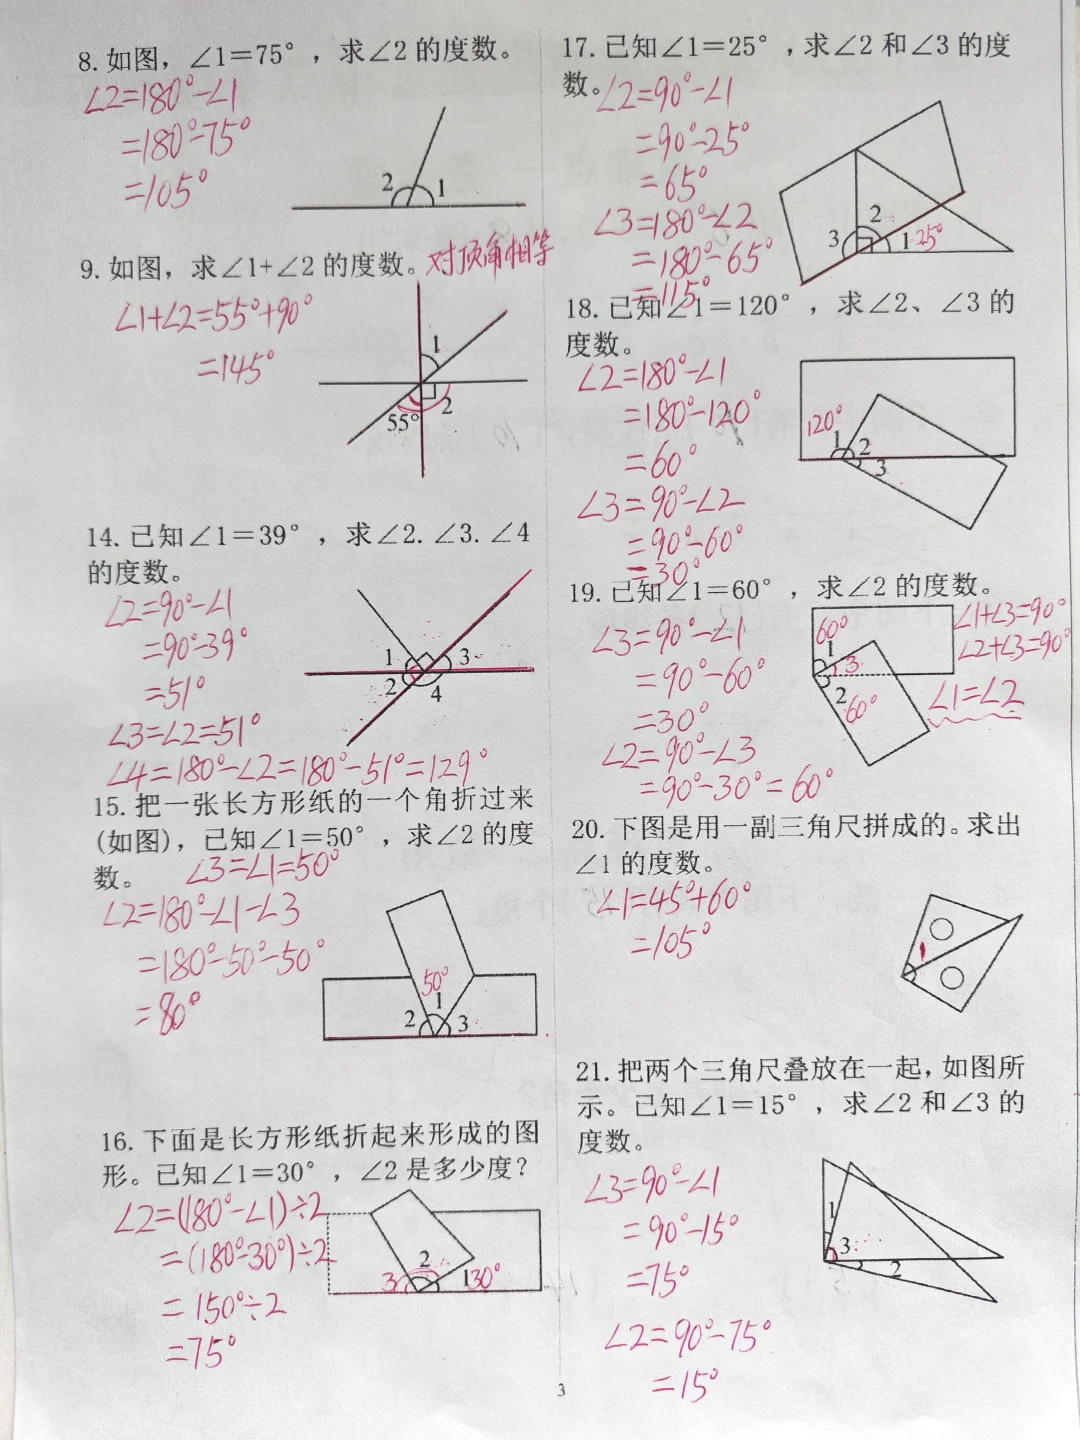 8.如图，∠1=75°，求∠2的度数。
∠2=180°-∠1
=180°-75°
=105°
2 1
9.如图，求∠1+∠2的度数。对顶角相等
∠1+∠2=55°+90°
=145°
1
55° 2
14.已知∠1=39°，求∠2.∠3.∠4
的度数。
∠2=90°-∠1
=90°-39°
=51°
∠3=∠2=51°
∠4=180°-∠2=180°-51°=129°
1 3
2 4
15.把一张长方形纸的一个角折过来
(如图)，已知∠1=50°，求∠2的度
数。 ∠3=∠1=50°
∠2=180°-∠1-∠3
=180°-50°-50°
=80°
50°
1
2 3
16.下面是长方形纸折起来形成的图
形。已知∠1=30°，∠2是多少度?
∠2=(180°-∠1)÷2
=(180°-30°)÷2
=150°÷2
=75°
2
3 1 30°
17.已知∠1=25°,求∠2和∠3的度
数。
∠2=90°-∠1
=90°-25°
=65°
∠3=180°-∠2
=180°-65°
=115°
2
3 1 25°
18.已知∠1=120°，求∠2、∠3的
度数。
∠2=180°-∠1
=180°-120°
=60°
∠3=90°-∠2
=90°-60°
=30°
120°
1 2
3
19.已知∠1=60°，求∠2的度数。
∠3=90°-∠1
=90°-60°
=30°
∠2=90°-∠3
=90°-30°=60°
60°
1
3
2
60°
∠1+∠3=90°
∠2+∠3=90°
∠1=∠2
20.下图是用一副三角尺拼成的。求出
∠1的度数。
∠1=45°+60°
=105°
1
21.把两个三角尺叠放在一起，如图所
示。已知∠1=15°，求∠2和∠3的
度数。
∠3=90°-∠1
=90°-15°
=75°
∠2=90°-75°
=15°
1
3
2
3